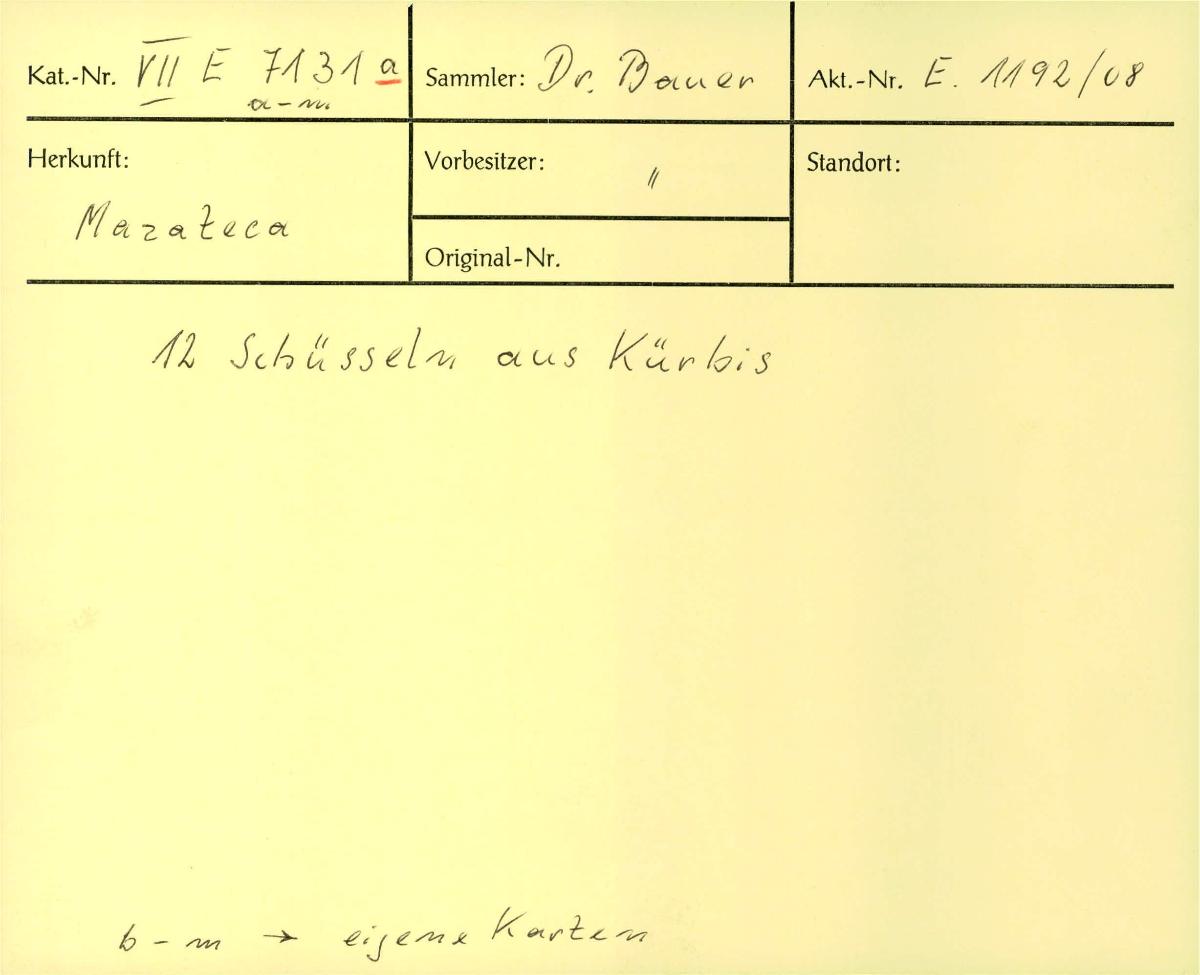 Kat.-Nr. VII E 7131 a
a-m.
Sammler: Dr. Bauer
Akt.-Nr. E. 1192/08
Herkunft:
Mazateca
Vorbesitzer: "
Original-Nr.
Standort:
12 Schüsseln aus Kürbis
b-m → eigene Karten